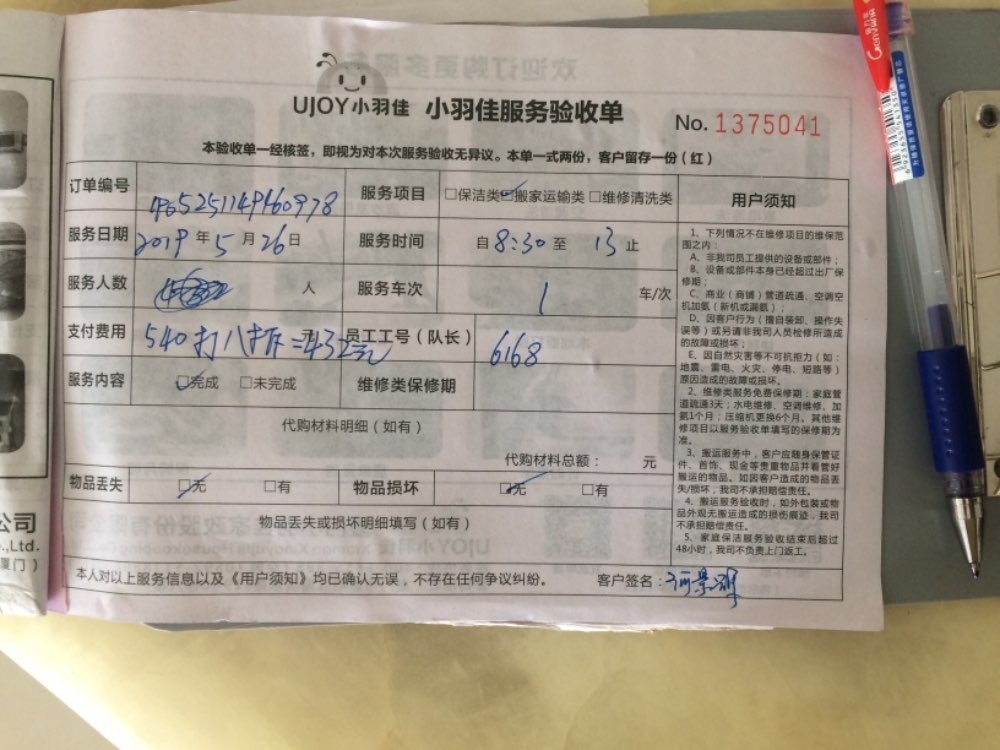 UJOY小羽佳 小羽佳服务验收单
No. 1375041
本验收单一经核签，即视为对本次服务验收无异议。本单一式两份，客户留存一份（红）
订单编号 服务项目 □保洁类 ☑搬家运输类 □维修清洗类
服务日期 2019 年 5 月 26 日 服务时间 自 8:30 至 13 止
服务人数 人 服务车次 1 车/次
支付费用 540打八折=432元 元 员工工号（队长） 6168
服务内容 ☑完成 □未完成 维修类保修期
代购材料明细（如有）
代购材料总额： 元
物品丢失 ☑无 □有 物品损坏 ☑无 □有
物品丢失或损坏明细填写（如有）
本人对以上服务信息以及《用户须知》均已确认无误，不存在任何争议纠纷。 客户签名：
用户须知
1、下列情况不在维修项目的维保范
围之内：
A、非我司员工提供的设备或部件；
B、设备或部件本身已经超过出厂保
修期；
C、商业（商铺）管道疏通、空调空
机加氨（新机或漏氨）；
D、因客户行为（擅自装卸、操作失
误等）或另请非我司人员检修所造成
的故障或损坏；
E、因自然灾害等不可抗拒力（如：
地震、雷电、火灾、停电、短路等）
原因造成的故障或损坏。
2、维修类服务免费保修期：家庭管
道疏通3天；水电维修、空调维修、加
氨1个月；压缩机更换6个月。其他维
修项目以服务验收单填写的保修期为
准。
3、搬运服务中，客户应随身保管证
件、首饰、现金等贵重物品并看管好
搬运的物品。如因客户造成的物品丢
失/损坏，我司不承担赔偿责任。
4、搬运服务验收时，如外包装或物
品外观无搬运造成的损伤痕迹，我司
不承担赔偿责任。
5、家庭保洁服务验收结束后超过
48小时，我司不负责上门返工。
公司
.,Ltd.
厦门）